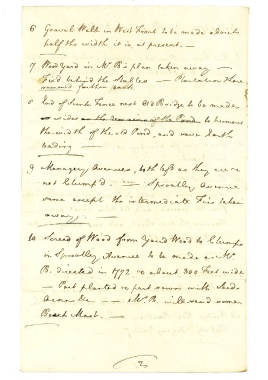 6 Gravel Walk in West Front to be made about
half the width it is at present. —
7 Wood Yard in Mr B's plan taken away —
Fixed behind the Stables — Plantation there
8 End of Sunk Fence next Old Bridge to be made
wider to humour
the width of the old Pond, and save Earth
leading —
9 Menagery Avenues, both left as they are
not Clump'd. — Sproatley Avenue
same except the intermediate Firs taken
away. —
10 Screed of Wood from Yard Wood to Clumps
in Sproatley Avenue to be made as Mr
B. directed in 1772 about 300 Feet wide
— Part planted & part sown with Seeds
Acorns &c — — Mr B. will send some
Beech Mast. —
2